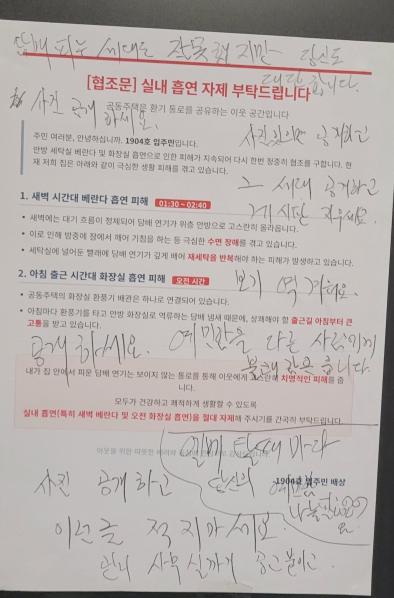 담배 피우 세대도 잘못했지만 당신도
대단합니다.
[협조문] 실내 흡연 자제 부탁드립니다
공동주택은 환기 통로를 공유하는 이웃 공간입니다
사진 공개 하세요.
주민 여러분, 안녕하십니까. 1904호 입주민입니다.
안방 세탁실 베란다 및 화장실 흡연으로 인한 피해가 지속되어 다시 한번 정중히 협조를 구합니다. 현
재 저희 집은 아래와 같이 극심한 생활 피해를 겪고 있습니다.
사진있으면 공개하고
그 세대 공개하고
게시판 지우세요.
1. 새벽 시간대 베란다 흡연 피해 01:30 ~ 02:40
• 새벽에는 대기 흐름이 정체되어 담배 연기가 위층 안방으로 고스란히 올라옵니다.
• 이로 인해 밤중에 잠에서 깨어 기침을 하는 등 극심한 수면 장애를 겪고 있습니다.
• 세탁실에 널어둔 빨래에 담배 연기가 깊게 배어 재세탁을 반복해야 하는 피해가 발생하고 있습니다.
2. 아침 출근 시간대 화장실 흡연 피해 오전 시간
보기 역겨워요.
• 공동주택의 화장실 환풍기 배관은 하나로 연결되어 있습니다.
• 아침마다 환풍기를 타고 안방 화장실로 역류하는 담배 냄새 때문에, 상쾌해야 할 출근길 아침부터 큰
고통을 받고 있습니다.
공개 하세요. 예민함을 다른 사람에게
불쾌감을 줍니다.
내가 집 안에서 피운 담배 연기는 보이지 않는 통로를 통해 이웃에게 고스란히 치명적인 피해를 줍니
다.
모두가 건강하고 쾌적하게 생활할 수 있도록
실내 흡연(특히 새벽 베란다 및 오전 화장실 흡연)을 절대 자제해 주시기를 간곡히 부탁드립니다.
이웃을 위한 따뜻한 배려와
1904호 입주민 배상
엘베 탈때 마다
사진 공개하고 당신의 예민함
이런글 적지마세요.
관리 사무실까지 공고붙이고